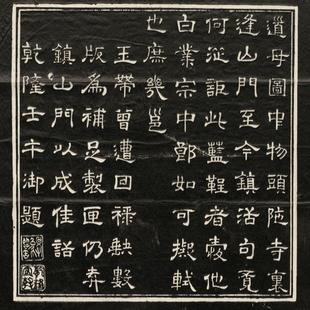 道母圖中物頭陀寺裏
逢山門至今鎮活句覓
何從詎此藍鞓者處他
白業宗中郎如可擬軾
也庶幾邕
玉帶曾遭回祿缺數
版為補足製匣仍弆
鎮山門以成佳話
乾隆壬午御題